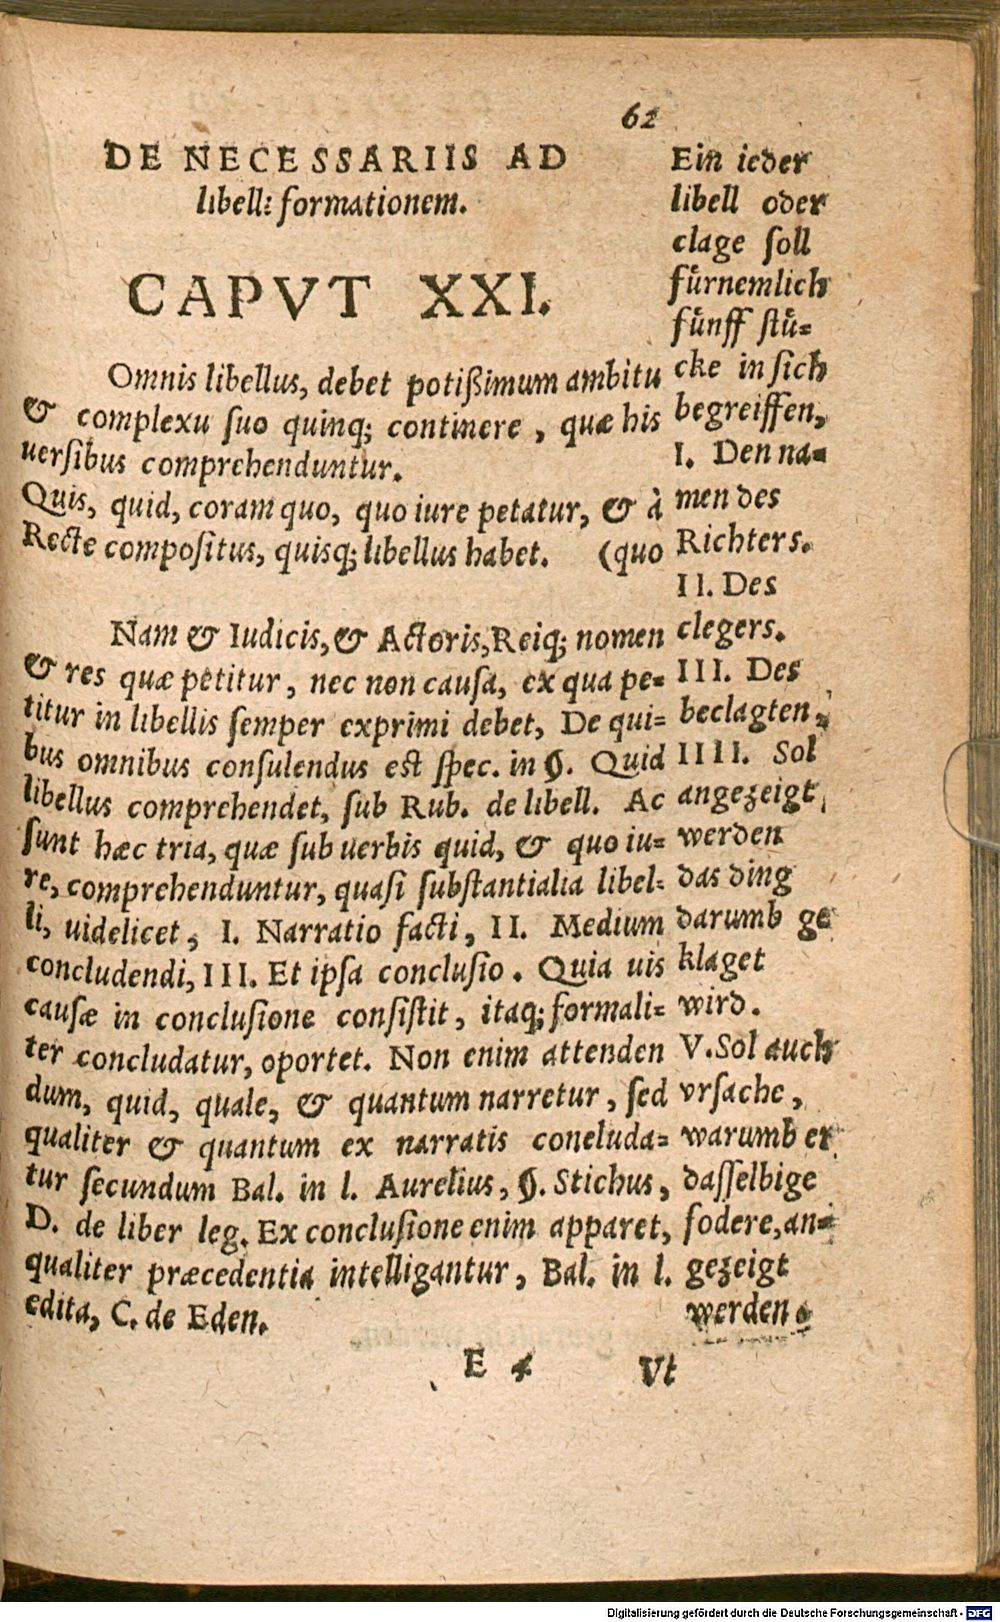 62
DE NECESSARIIS AD
libell: formationem.
CAPVT XXI.
Omnis libellus, debet potißimum ambitu
& complexu suo quinq; continere, quæ his
uersibus comprehenduntur.
Quis, quid, coram quo, quo iure petatur, & à
Recte compositus, quisq; libellus habet. (quo
Nam & Iudicis, & Actoris, Reiq; nomen
& res quæ petitur, nec non causa, ex qua pe=
titur in libellis semper exprimi debet, De qui=
bus omnibus consulendus est spec. in §. Quid
libellus comprehendet, sub Rub. de libell. Ac
sunt hæc tria, quæ sub uerbis quid, & quo iu=
re, comprehenduntur, quasi substantialia libel=
li, uidelicet, I. Narratio facti, II. Medium
concludendi, III. Et ipsa conclusio. Quia uis
causæ in conclusione consistit, itaq; formali=
ter concludatur, oportet. Non enim attenden
dum, quid, quale, & quantum narretur, sed
qualiter & quantum ex narratis concluda=
tur secundum Bal. in l. Aurelius, §. Stichus,
D. de liber leg. Ex conclusione enim apparet,
qualiter præcedentia intelligantur, Bal. in l.
edita, C. de Eden.
Ein ieder
libell oder
clage soll
fürnemlich
fünff stü=
cke in sich
begreiffen,
I. Den na=
men des
Richters.
II. Des
clegers.
III. Des
beclagten,
IIII. Sol
angezeigt
werden
das ding
darumb ge
klaget
wird.
V. Sol auch
vrsache,
warumb er
dasselbige
fodere, an=
gezeigt
werden.
E 4 Vt
Digitalisierung gefördert durch die Deutsche Forschungsgemeinschaft - DFG